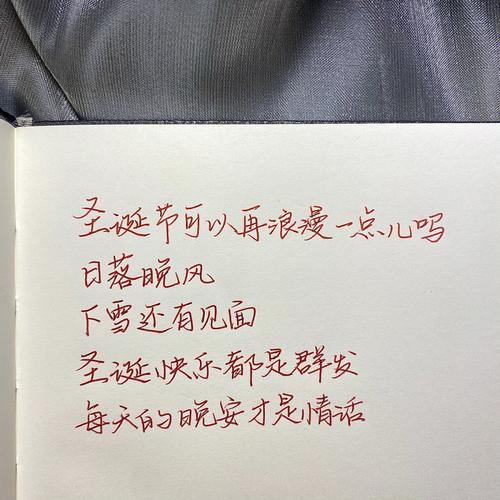 圣诞节可以再浪漫一点儿吗
日落晚风
下雪还有见面
圣诞快乐都是群发
每天的晚安才是情话